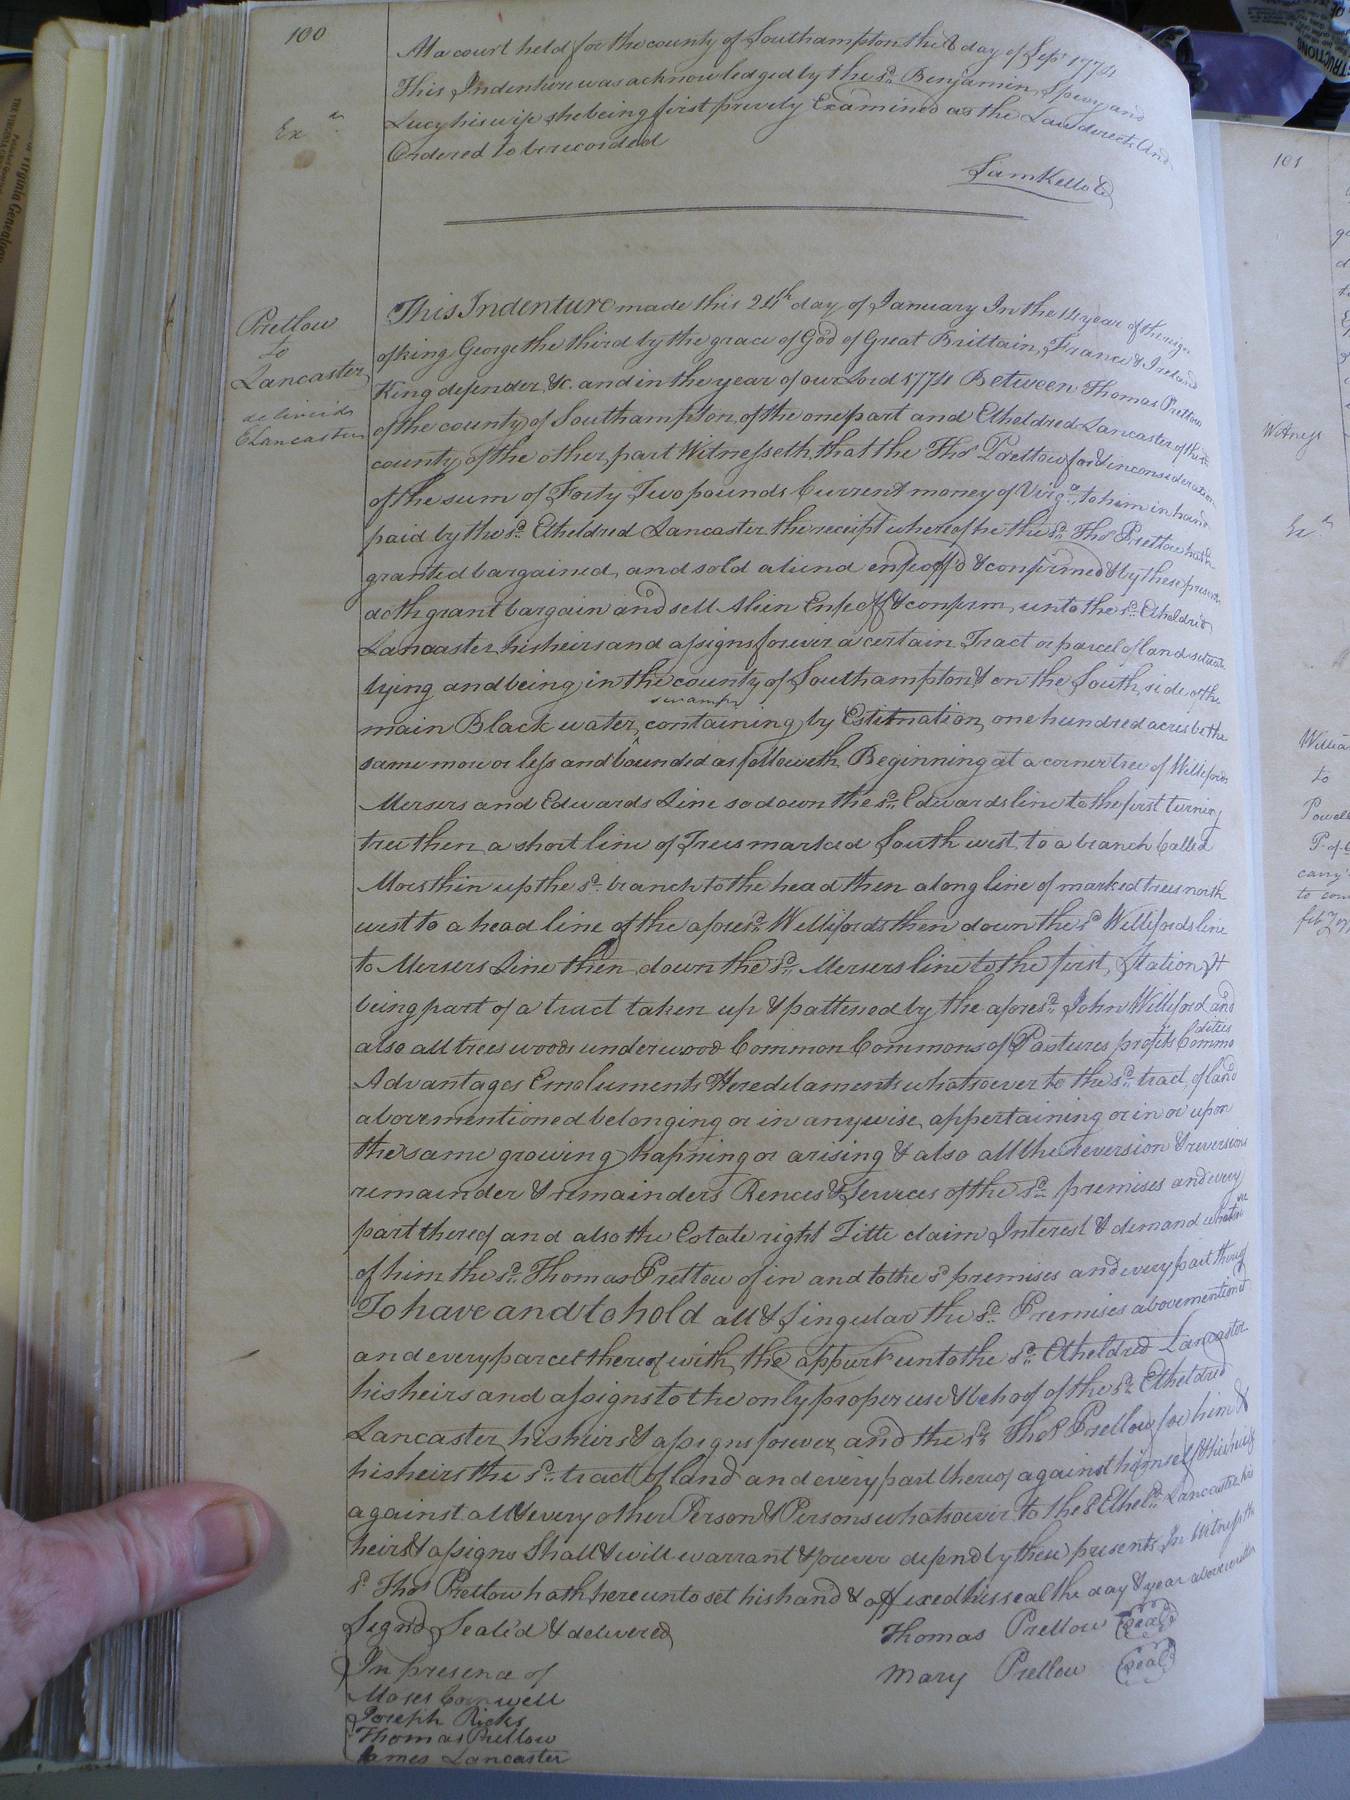 100
At a court held for the county of Southampton the 8 day of Sepr 1774
This Indenture was acknowledged by the sd. Benjamin Spivy and
Lucy his wife she being first privily Examined as the Law directs And
Ordered to be recorded
Exd
Sam Kello C
Pretlow
to
Lancaster
delivered
E Lancaster
This Indenture made this 24th day of January In the 14 year of the reign
of king George the third by the grace of God of Great Brittain, France & Ireland
King defender &c. and in the year of our Lord 1774 Between Thomas Pretlow
of the county of Southampton, of the one part and Etheldred Lancaster of the sd.
county of the other part Witnesseth that the Thos Pretlow for & in consideration
of the sum of Forty Two pounds Current money of Virga. to him in hand
paid by the sd. Etheldred Lancaster the receipt whereof he the sd. Thos Pretlow hath
granted bargained, and sold aliend enfeoff'd & confirmed & by these presents
doth grant bargain and sell Alien Enfeoff & confirm, unto the sd. Etheldrid
Lancaster his heirs and assigns forever a certain Tract or parcel of land situate
lying and being in the county of Southampton & on the South side of the
main Black water swamp, containing by Estimation, one hundred acres be the
same more or less and bounded as followeth. Beginning at a corner tree of Willifords
Mersers and Edwards Line so down the sd. Edwards line to the first turning
tree then a short line of Trees marked South west to a branch Called
up the sd. branch to the head then along line of marked trees north
west to a head line of the aforesd. Willifords then down the sd Willifords line
to Mersers Line then down the sd. Mersers line to the first Station It
being part of a tract taken up & pattened by the aforesd. John Williford and
also all trees woods underwood Common Commons of Pastures profits Commodities
Advantages Emoluments Heredelaments whatsoever to the sd. tract of land
abovementioned belonging or in anywise appertaining or in or upon
the same growing hapning or arising & also all the reversion & reversions
remainder & remainders Rences & Services of the sd. premises and every
part thereof and also the Estate right Title claim Interest & demand whatsoe
of him the sd. Thomas Pretlow of in and to the sd premises and every part thereof
To have and to hold all & Singular the sd. Premises abovementioned
and every parcel thereof with the appurts unto the sd. Etheldred Lancaster
his heirs and assigns to the only proper use & behoof of the sd. Etheldred
Lancaster his heirs & assigns forever, and the sd. Thos Pretlow for him &
his heirs the sd. tract of land and every part thereof against himself & his heirs
against all & every other Person & Persons whatsoever to the sd Etheld. Lancaster his
heirs & assigns Shall & will warrant & forever defend by these presents In Witness the
sd Thos Pretlow hath hereunto set his hand & affixed his seal the day & year above written
Signd Seal'd & delivered
In presence of
Moses Cornwell
Joseph Ricks
Thomas Pretlow
James Lancaster
Thomas Pretlow (seal)
Mary Pretlow (seal)
101
Witness
to